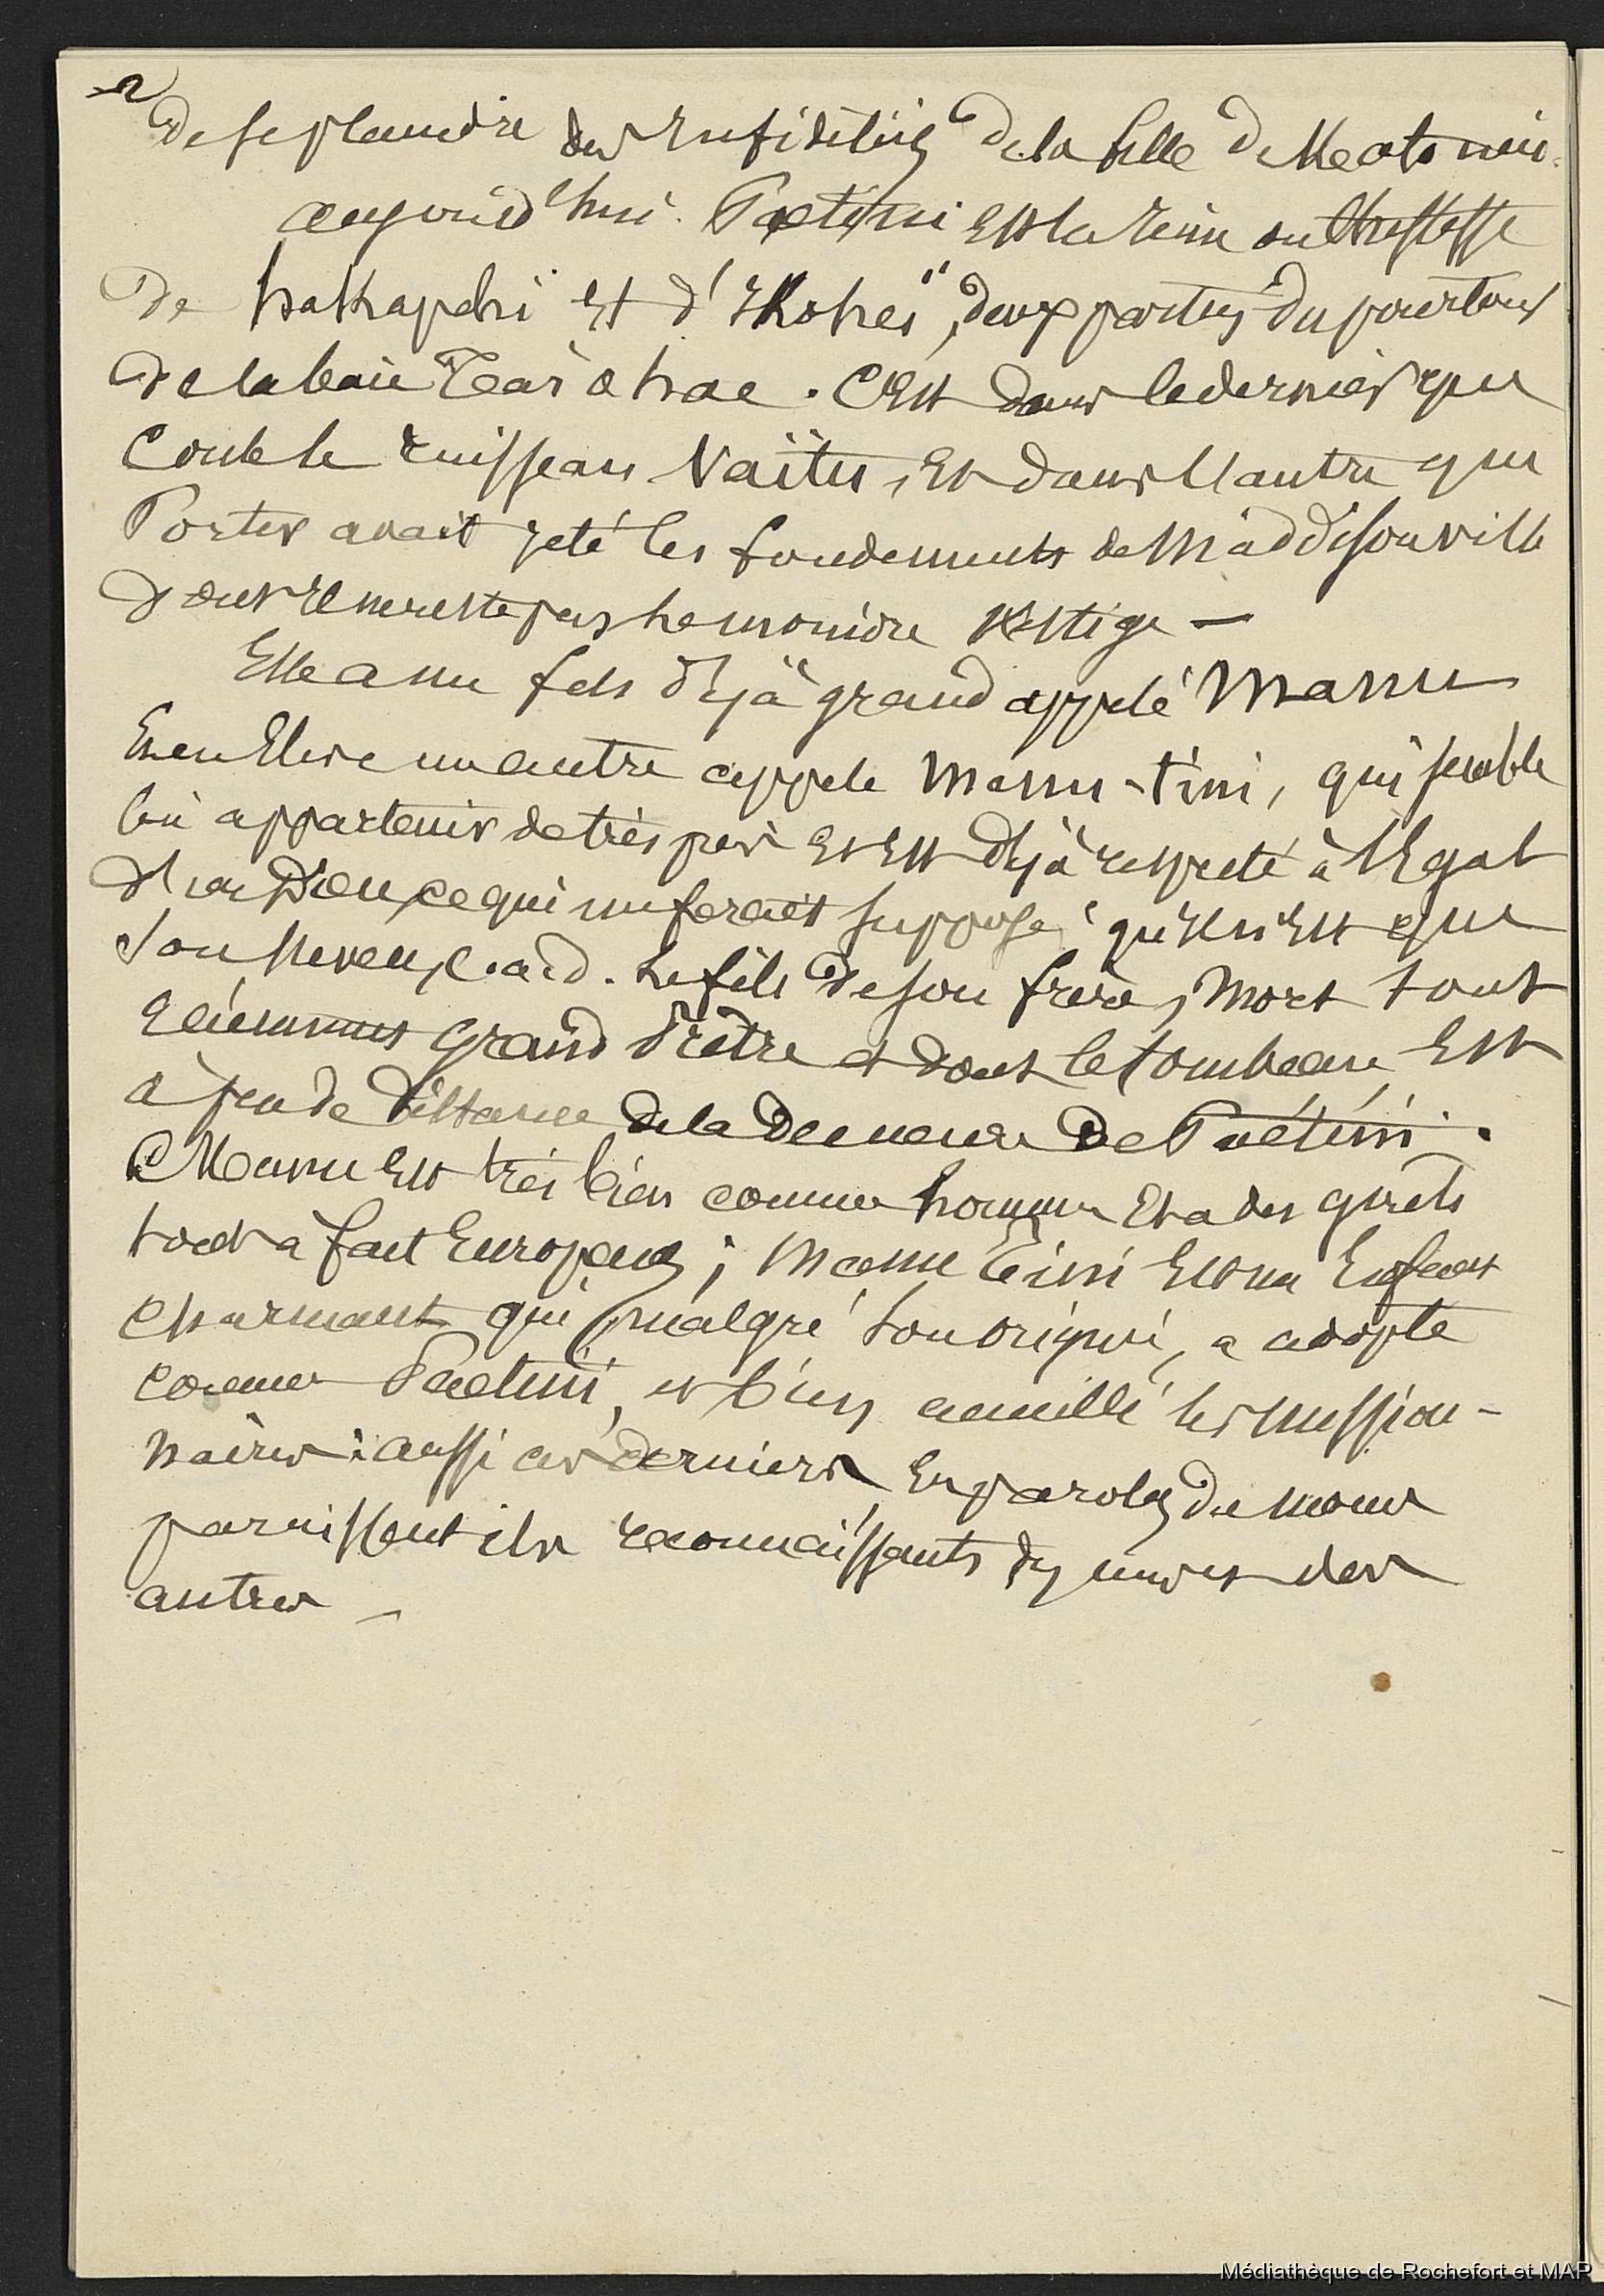 2
de se plaindre des infidélités de la fille de Keatonui.
aujourd'hui. Paetini est la reine ou chefesse
de hakapehi et d'Ikohei, deux parties du pourtour
de la baie Taïohae. C'est dans le dernier que
coule le ruisseau Vaïtu, et dans l'autre que
Porter avait jeté les fondements de Maddisonville
dont il ne reste pas le moindre vestige —
Elle a un fils déjà grand appelé Manu
en élève un autre appelé Manu-tini, qui semble
lui appartenir de très près et est déjà respecté à l'égal
d'un Dieu, ce qui me ferait supposer qu'il n'est que
son neveu, c.à.d. le fils de son frère, mort tout
grand Prêtre et dont le tombeau est
à peu de distance de la demeure de Paétini.
Manu est très bien comme homme et a des goûts
tout à fait Européens; Manu tini est un enfant
charmant qui, malgré son a adopté
comme Paetini, et bien accueilli les mission-
naires: aussi ces derniers en paroles du moins
paraissent ils reconnaissants des uns et des
autres —
Médiathèque de Rochefort et MAP